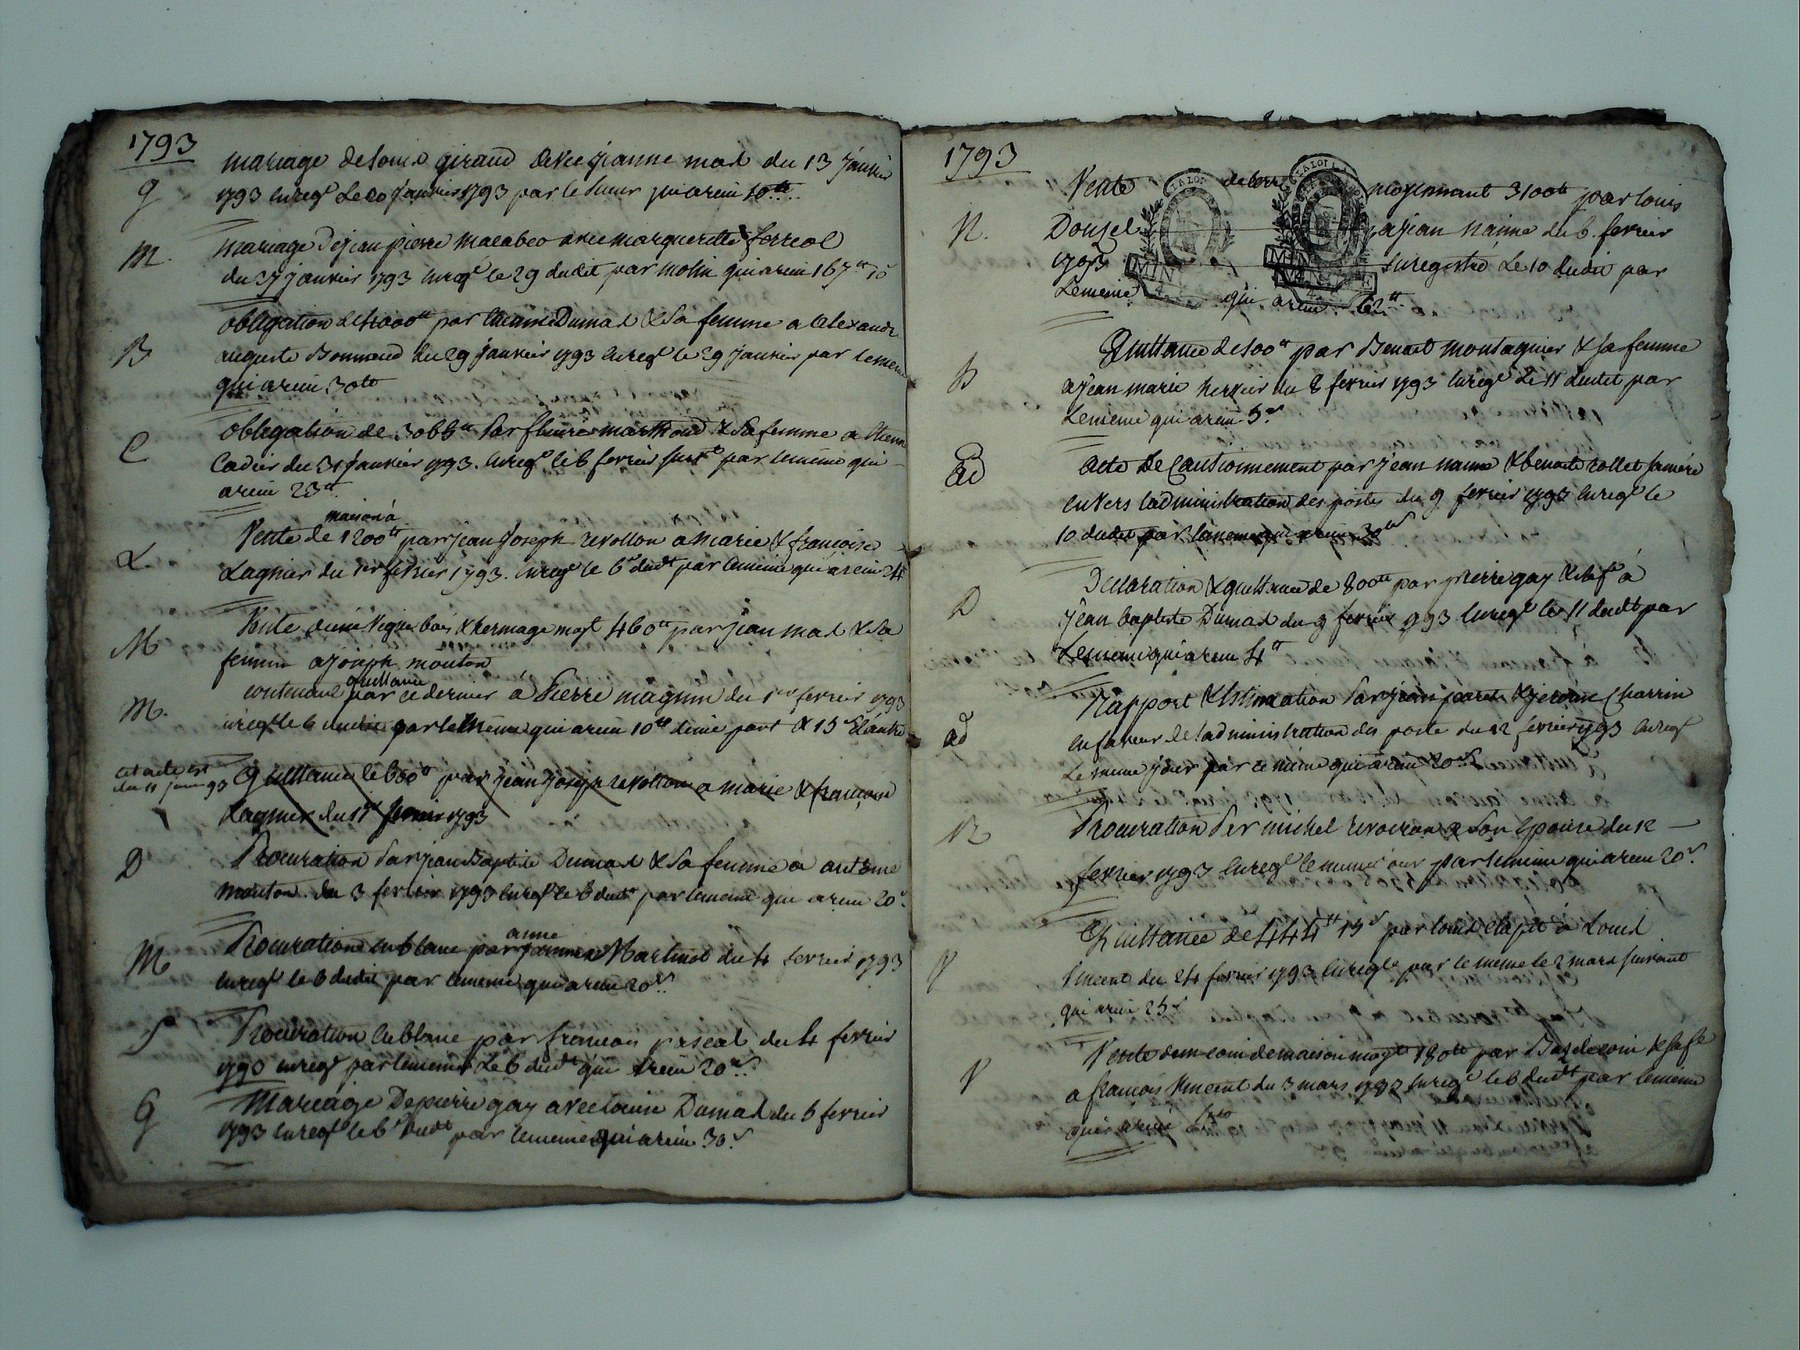 1793
mariage de Louis giraud avec jeanne mad du 13 janvier
g
1793 enregé le 20 janvier 1793 par le sieur qui a reçu 10tt
mariage de jean pierre macabeo avec margueritte forreol
M.
du 27 janvier 1793 enregé le 29 dudit par molin qui a reçu 167tt 10s
obligation de 4000tt par Dumas & sa femme a alexandre
B
auguste Bonnand du 29 janvier 1793 enregé le 29 janvier par lememe
qui a reçu 30tt
obligation de 3066tt par fleurie marthoud & sa femme a
C
Cadier du 31 janvier 1793. enregé le 6 fevrier par lememe qui
a reçu 23tt
maison à
Vente de 1200tt par jean joseph revollon a marie & françoise
L.
Lagnier du 1er fevrier 1793. enregé le 6 dudt par lememe qui a reçu 24
Vente d'une vigne bois & hermage moyt 460tt par jean mad & sa
M
femme a joseph mouton
quittance
contenant par ce dernier à Pierre magnin du 1er fevrier 1793
M.
enregé le 6 dudit par le meme qui a reçu 10tt d'une part & 15s d'autre
cet acte est
du 11 janv 93
quittance de 600tt par jean joseph revollon a marie & françoise
Lagnier du 1er fevrier 1793
Procuration par jean Baptiste Dumas & sa femme à antoine
D
mouton du 3 fevrier 1793 enregé le 6 dudt par lememe qui a reçu 20s
anne
Procuration en blanc par Martinot du 4 fevrier 1793
M
enregé le 6 dudit par lememe qui a reçu 20s
Procuration en blanc par francois pascal du 4 fevrier
1793 enregé par lememe le 6 dudt qui a reçu 20s
Mariage De pierre gay avec Louise Dumas du 6 fevrier
G
1793 enregé le 6 dudt par lememe qui a reçu 30s
1793
Vente de terre moyennant 3100tt par louis
N.
Douzel a jean naime du 6. fevrier
1793 enregistré le 10 dudit par
Lememe qui a reçu 62tt
LA LOI
LA LOI
Quittance de 500tt par Benoit montagnier & sa femme
h
a jean marie hervier du 8 fevrier 1793 enregé le 11 dudit par
Lememe qui a reçu 5s
acte de Cautionnement par jean naime & benoite rollet sa mère
ad
envers l'administration des postes du 9 fevrier 1793 enregé le
10 dudit par lememe qui a reçu 30s
Declaration & quittance de 800tt par pierre gay & sa fe à
D
jean baptiste Dumas du 9 fevrier 1793 enregé le 11 dudt par
Lememe qui a reçu 4tt
Rapport & Estimation par jean & jerome Charrin
ad
en faveur de l'administration des poste du 12 fevrier 1793 enregé
Le meme jour par ce meme qui a reçu 20s
Procuration Par michel revoeran a son Epouse du 12
R
fevrier 1793 enregé le meme jour par lememe qui a reçu 20s
Quittance de 444tt 15s par louis à Louis
V
Vincent du 24 fevrier 1793 enregé par le meme le 2 mars suivant
qui a reçu 25s
Vente d'un coin de maison moyt 180tt par & sa fe
V
a francois Vincent du 3 mars 1793 enregé le 6 dudt par lememe
qui a reçu